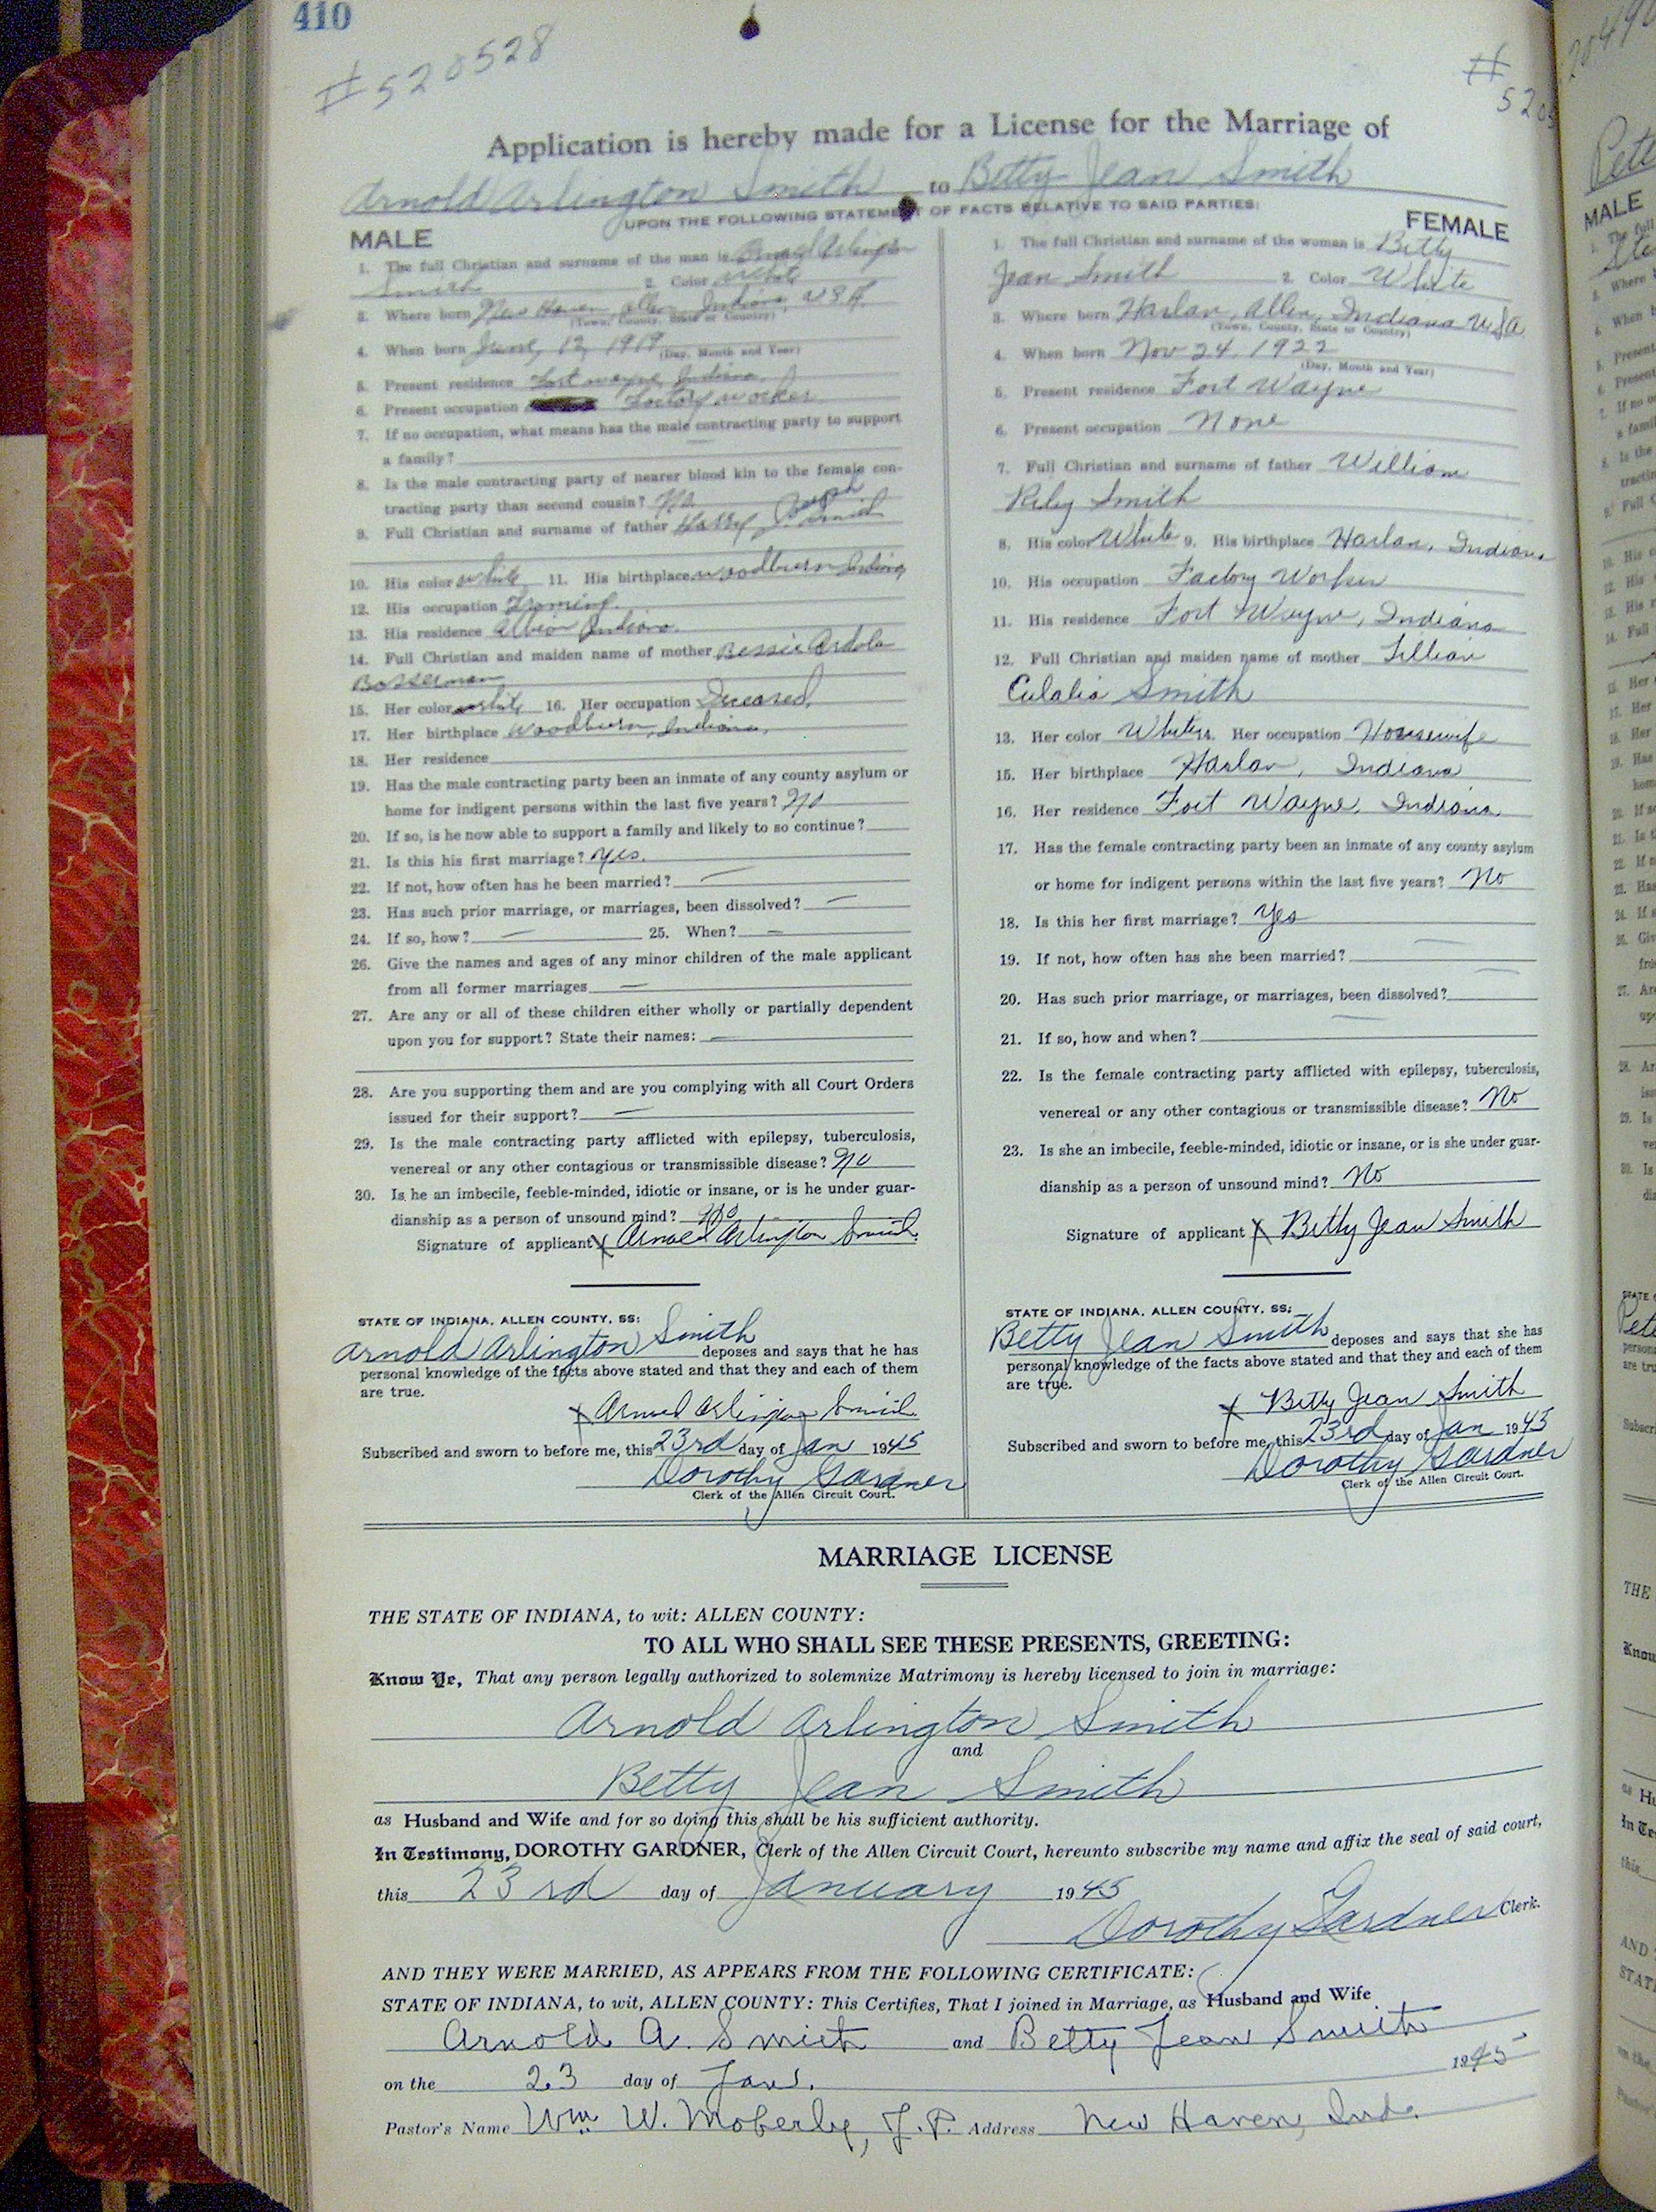 410
#520528
#
520
Application is hereby made for a License for the Marriage of
Arnold Arlington Smith to Betty Jean Smith
UPON THE FOLLOWING STATEMENT OF FACTS RELATIVE TO SAID PARTIES:
MALE
1. The full Christian and surname of the man is Arnold Arlington
Smith 2. Color White
3. Where born New Haven, Allen, Indiana, USA
(Town, County, State or Country)
4. When born June, 12, 1919
(Day, Month and Year)
5. Present residence Fort Wayne, Indiana.
6. Present occupation Factory worker
7. If no occupation, what means has the male contracting party to support
a family?
8. Is the male contracting party of nearer blood kin to the female con-
tracting party than second cousin? No
9. Full Christian and surname of father Harry Joseph Smith
10. His color white 11. His birthplace Woodburn Indiana
12. His occupation Farming.
13. His residence Albion Indiana.
14. Full Christian and maiden name of mother Bessie Ardola
Bosserman
15. Her color white 16. Her occupation Deceased.
17. Her birthplace Woodburn, Indiana.
18. Her residence
19. Has the male contracting party been an inmate of any county asylum or
home for indigent persons within the last five years? No
20. If so, is he now able to support a family and likely to so continue?
21. Is this his first marriage? Yes.
22. If not, how often has he been married? —
23. Has such prior marriage, or marriages, been dissolved? —
24. If so, how? — 25. When? —
26. Give the names and ages of any minor children of the male applicant
from all former marriages —
27. Are any or all of these children either wholly or partially dependent
upon you for support? State their names: —
28. Are you supporting them and are you complying with all Court Orders
issued for their support? —
29. Is the male contracting party afflicted with epilepsy, tuberculosis,
venereal or any other contagious or transmissible disease? No
30. Is he an imbecile, feeble-minded, idiotic or insane, or is he under guar-
dianship as a person of unsound mind? No
Signature of applicant X Arnold Arlington Smith
STATE OF INDIANA, ALLEN COUNTY, SS:
Arnold Arlington Smith deposes and says that he has
personal knowledge of the facts above stated and that they and each of them
are true.
X Arnold Arlington Smith
Subscribed and sworn to before me, this 23rd day of Jan 1945
Dorothy Gardner
Clerk of the Allen Circuit Court.
FEMALE
1. The full Christian and surname of the woman is Betty
Jean Smith 2. Color White
3. Where born Harlan, Allen, Indiana USA
(Town, County, State or Country)
4. When born Nov 24, 1922
(Day, Month and Year)
5. Present residence Fort Wayne
6. Present occupation None
7. Full Christian and surname of father William
Riley Smith
8. His color White 9. His birthplace Harlan, Indiana
10. His occupation Factory Worker
11. His residence Fort Wayne, Indiana
12. Full Christian and maiden name of mother Lillian
Eulalia Smith
13. Her color White 14. Her occupation Housewife
15. Her birthplace Harlan, Indiana
16. Her residence Fort Wayne, Indiana
17. Has the female contracting party been an inmate of any county asylum
or home for indigent persons within the last five years? No
18. Is this her first marriage? Yes
19. If not, how often has she been married? —
20. Has such prior marriage, or marriages, been dissolved? —
21. If so, how and when? —
22. Is the female contracting party afflicted with epilepsy, tuberculosis,
venereal or any other contagious or transmissible disease? No
23. Is she an imbecile, feeble-minded, idiotic or insane, or is she under guar-
dianship as a person of unsound mind? No
Signature of applicant X Betty Jean Smith
STATE OF INDIANA, ALLEN COUNTY, SS:
Betty Jean Smith deposes and says that she has
personal knowledge of the facts above stated and that they and each of them
are true.
X Betty Jean Smith
Subscribed and sworn to before me, this 23rd day of Jan 1945
Dorothy Gardner
Clerk of the Allen Circuit Court.
MARRIAGE LICENSE
THE STATE OF INDIANA, to wit: ALLEN COUNTY:
TO ALL WHO SHALL SEE THESE PRESENTS, GREETING:
Know Ye, That any person legally authorized to solemnize Matrimony is hereby licensed to join in marriage:
Arnold Arlington Smith
and
Betty Jean Smith
as Husband and Wife and for so doing this shall be his sufficient authority.
In Testimony, DOROTHY GARDNER, Clerk of the Allen Circuit Court, hereunto subscribe my name and affix the seal of said court,
this 23rd day of January 1945
Dorothy Gardner Clerk.
AND THEY WERE MARRIED, AS APPEARS FROM THE FOLLOWING CERTIFICATE:
STATE OF INDIANA, to wit, ALLEN COUNTY: This Certifies, That I joined in Marriage, as Husband and Wife
Arnold A. Smith and Betty Jean Smith
on the 23 day of Jan. 1945
Pastor's Name Wm. W. Moberly, J.P. Address New Haven, Ind.